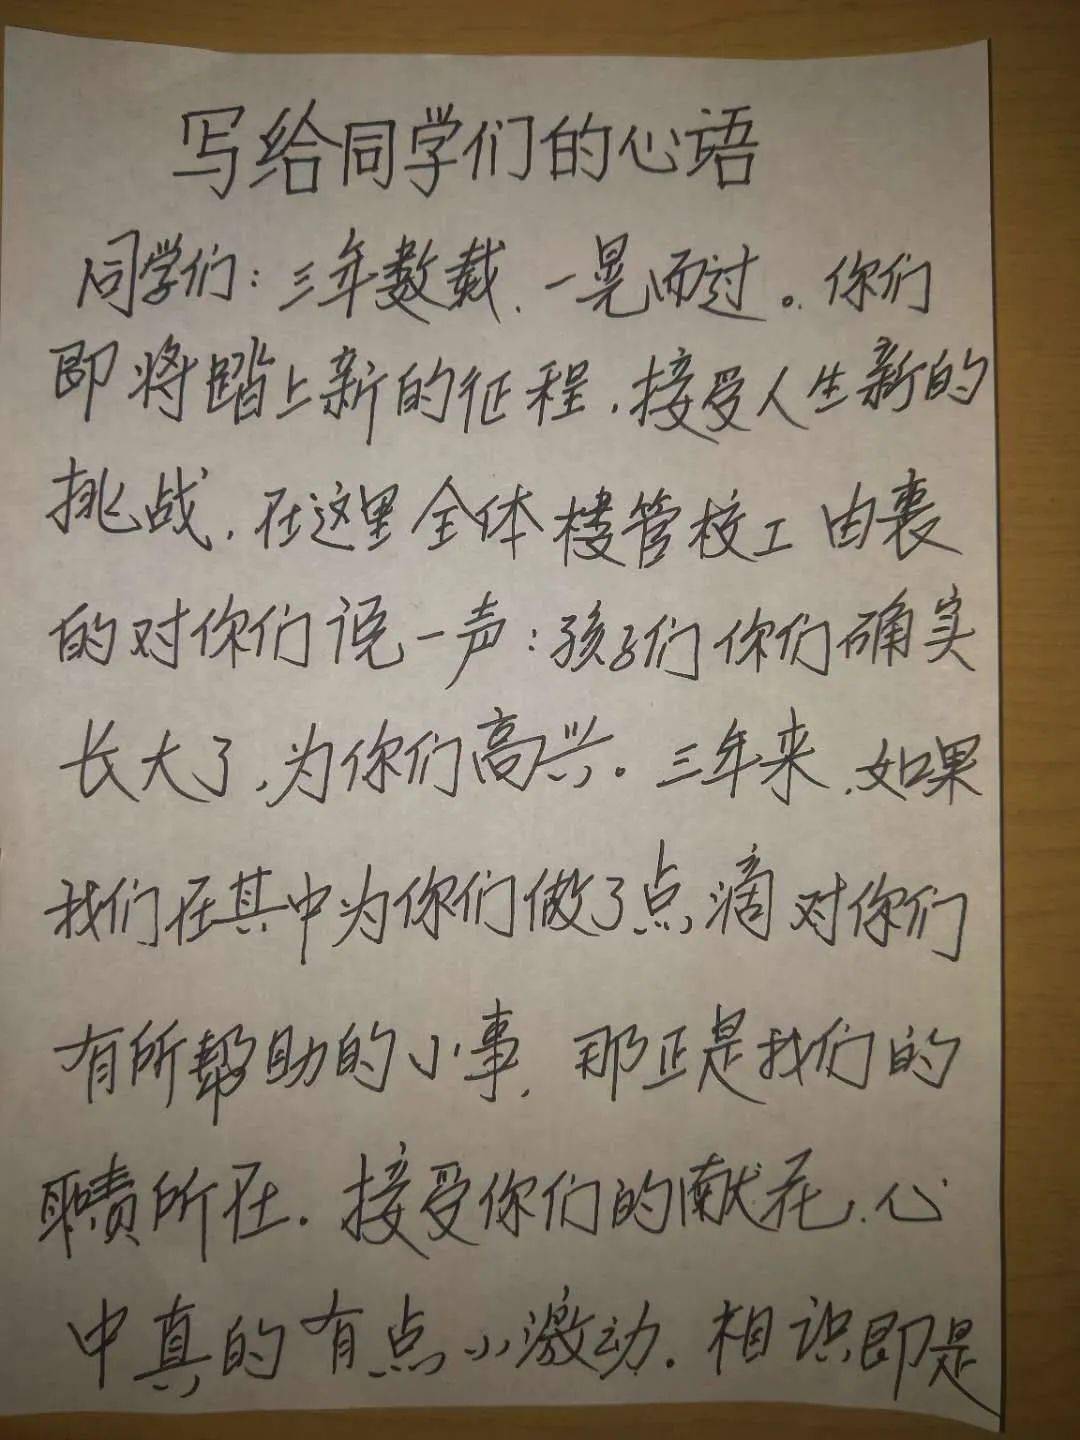 写给同学们的心语
同学们：三年数载，一晃而过。你们
即将踏上新的征程，接受人生新的
挑战，在这里全体楼管校工由衷
的对你们说一声：孩子们你们确实
长大了，为你们高兴。三年来，如果
我们在其中为你们做了点滴对你们
有所帮助的小事，那正是我们的
职责所在。接受你们的献花，心
中真的有点小激动。相识即是